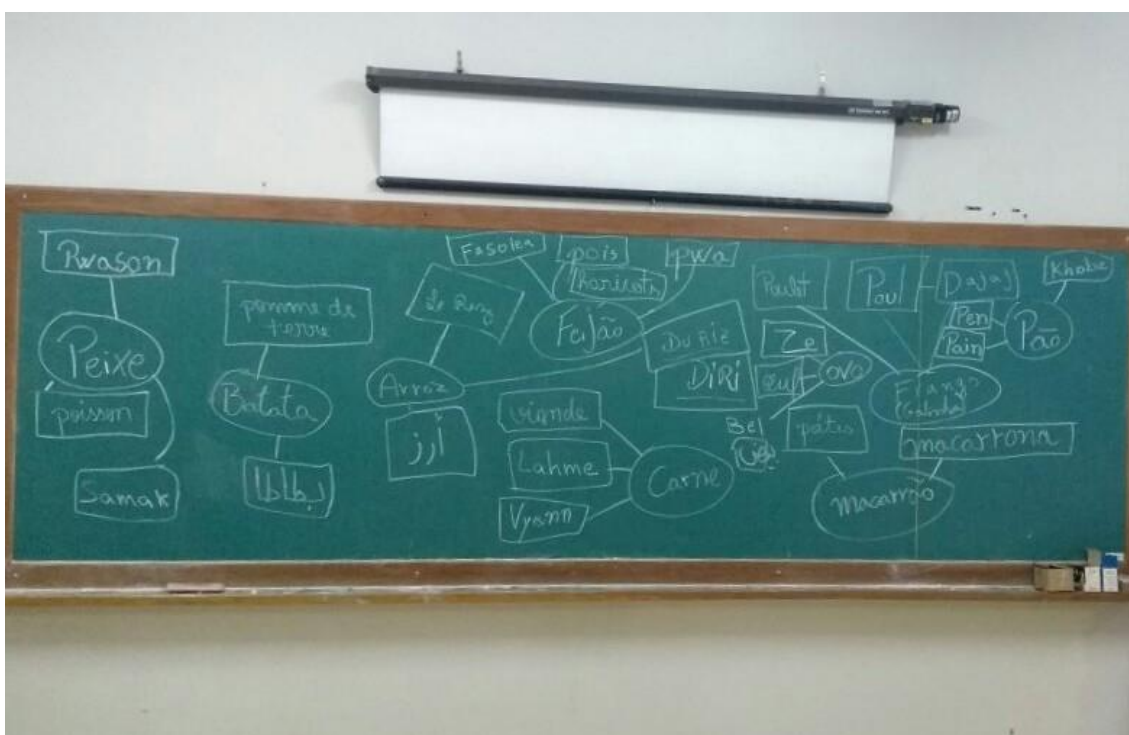 Rwason
Peixe
poisson
Samak
pomme de
terre
Batata
بطاطا
Le Riz
Arroz
أرز
Fasolea
pois
haricots
pwa
Feijão
Du Riz
DiRi
viande
Lahme
Vyann
Carne
Poulet
Poul
Dajaj
Frango
Galinha
Ze
œuf
ovo
Bel
Khobz
Pen
Pain
Pão
pâtes
macarrona
macarrão